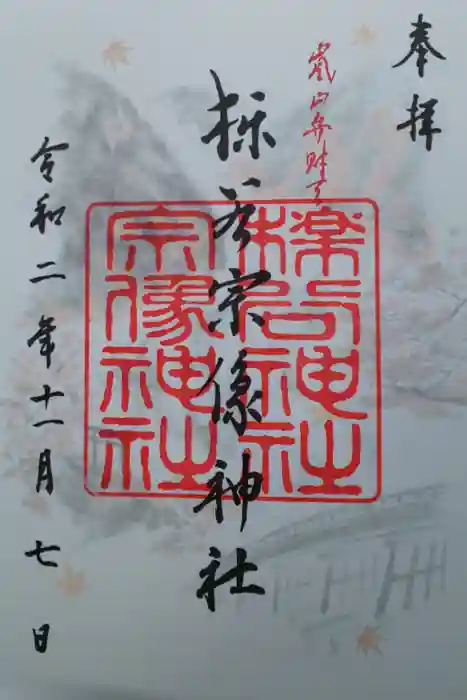 奉拝
嵐山弁財天
櫟谷宗像神社
櫟谷神社
宗像神社
令和二年十一月七日